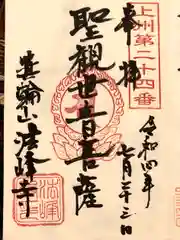 上州第二十四番
奉拝
令和四年
七月二十三日
聖観世音菩薩
箕輪山法峰寺
法峰